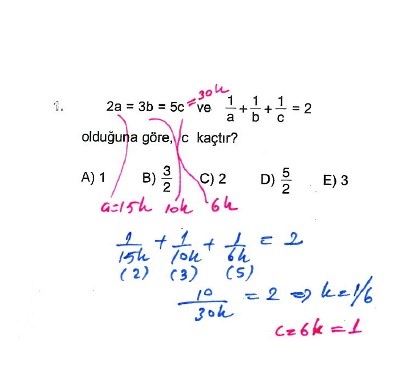 1. 2a = 3b = 5c =30k ve 1/a + 1/b + 1/c = 2
olduğuna göre, c kaçtır?
A) 1 B) 3/2 C) 2 D) 5/2 E) 3
a=15k 10k 6k
1/15k + 1/10k + 1/6k = 2
(2) (3) (5)
10/30k = 2 ⇒ k=1/6
c=6k=1